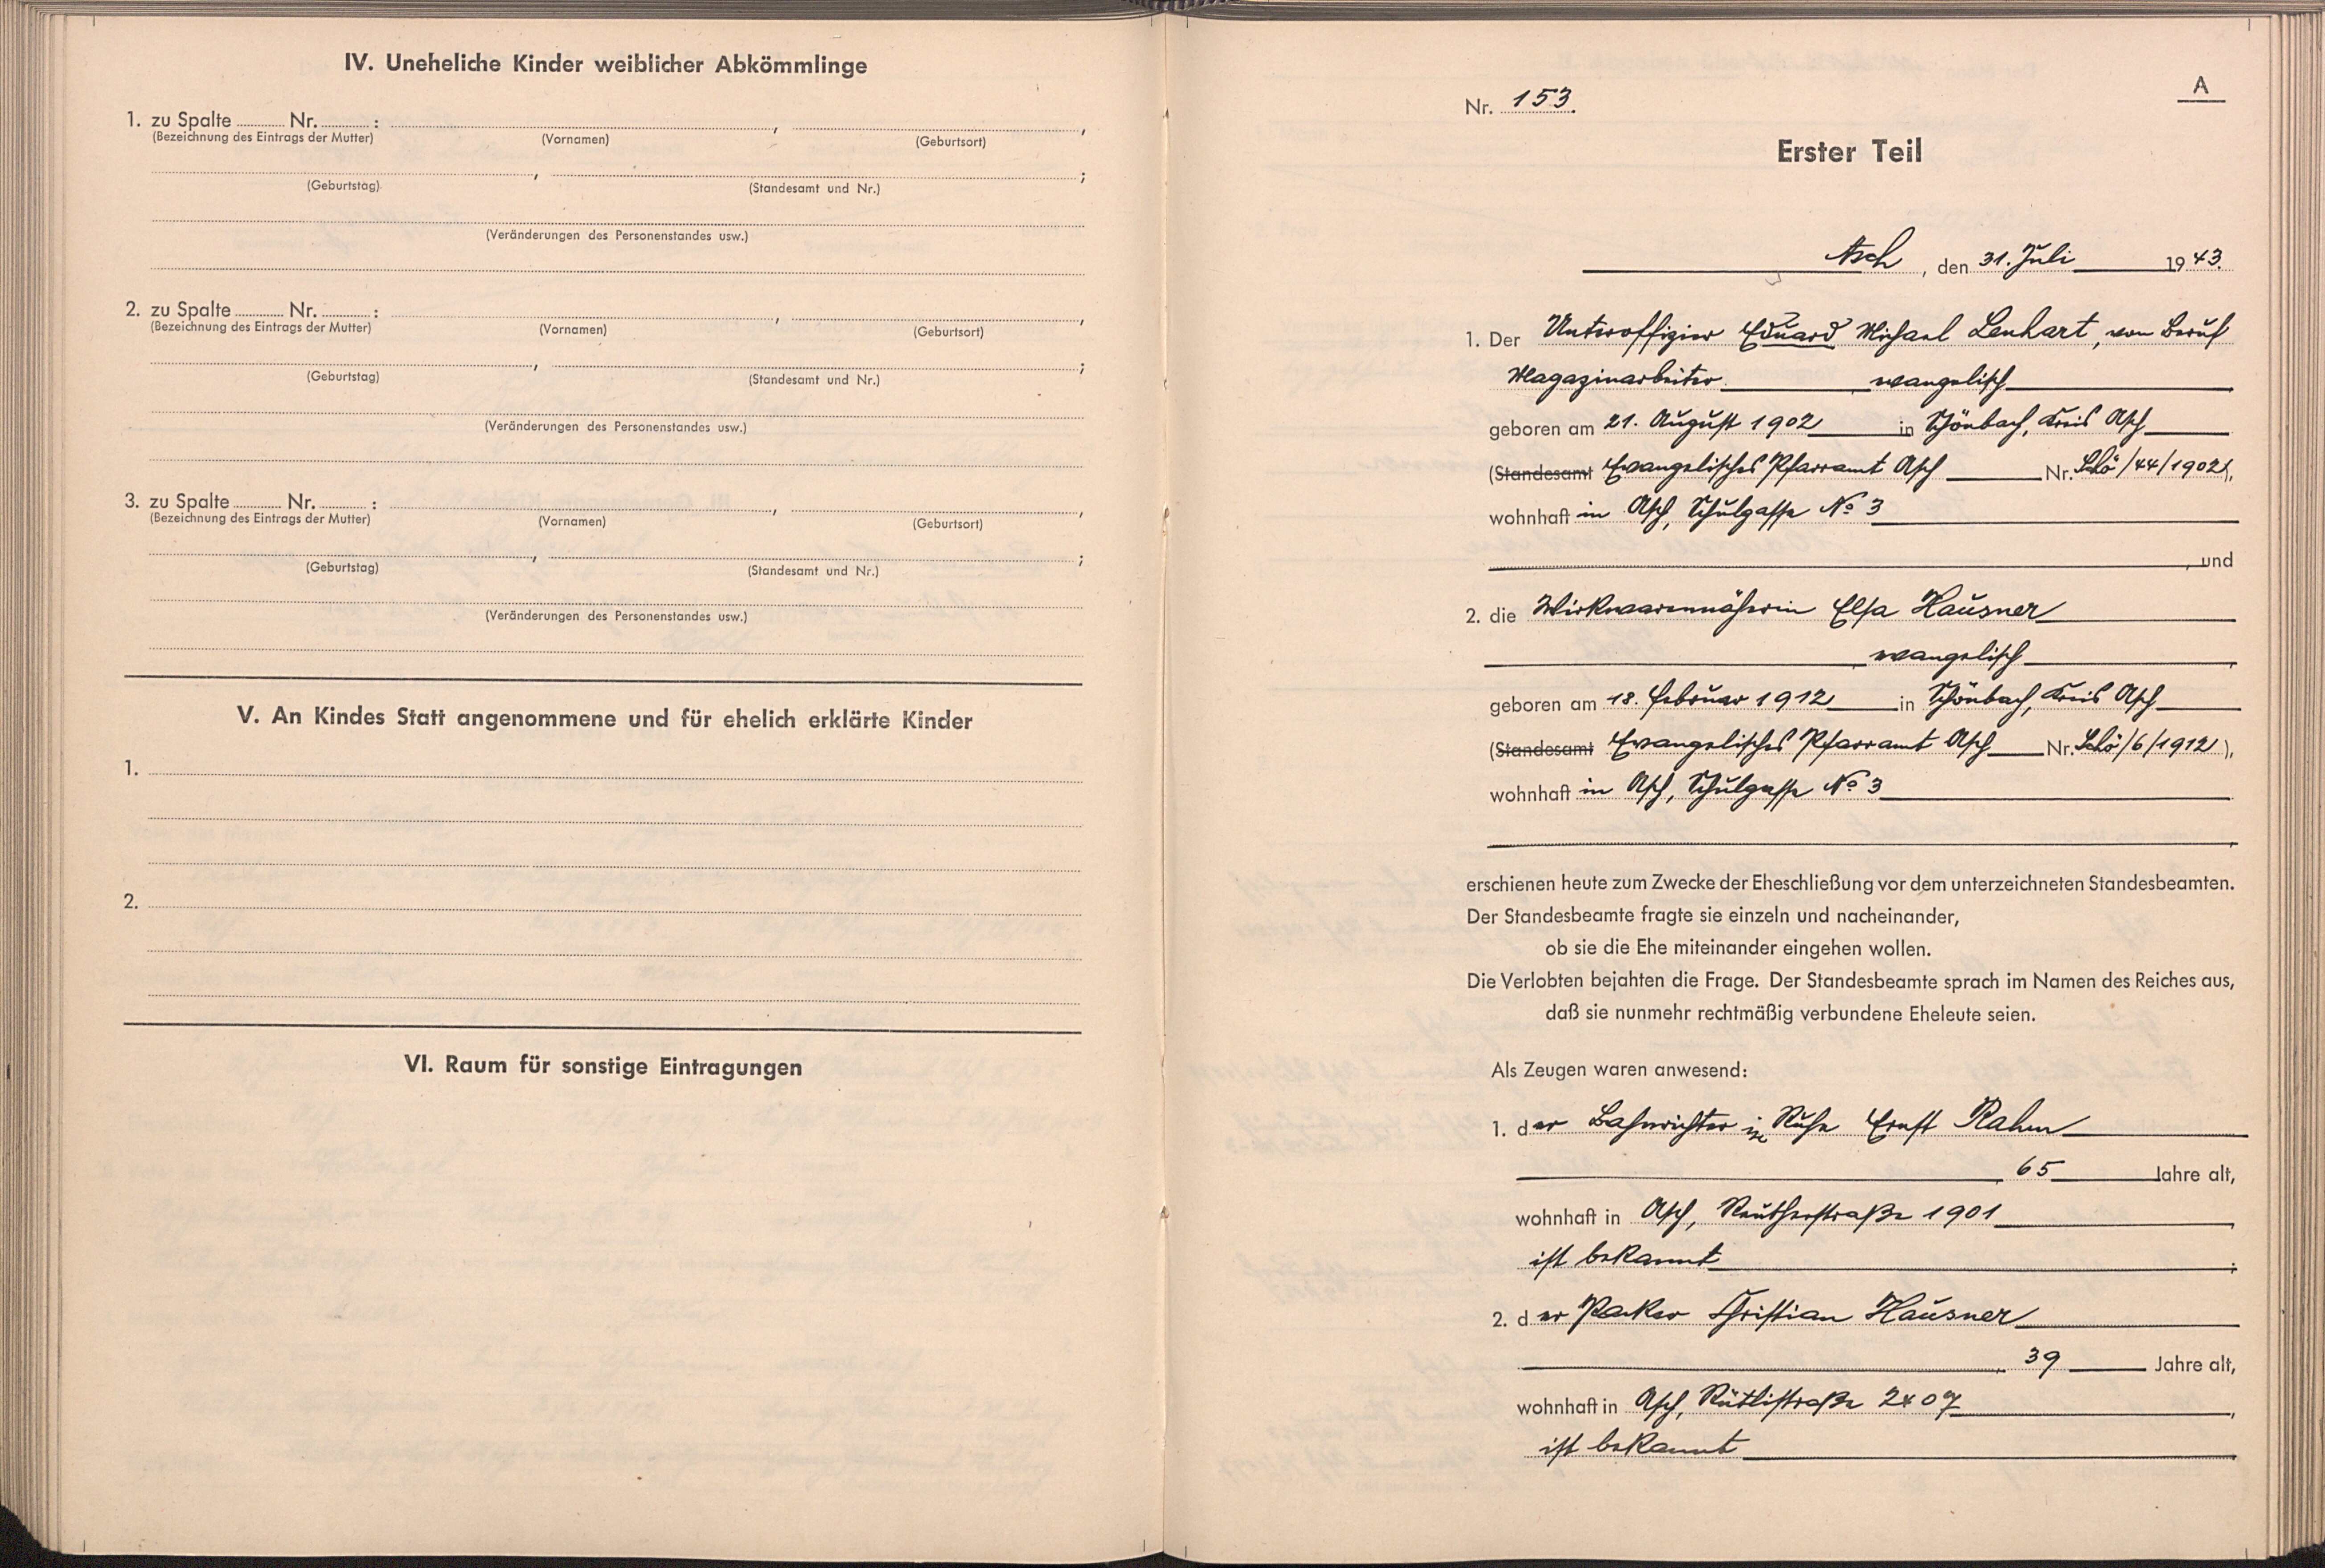 IV. Uneheliche Kinder weiblicher Abkömmlinge
1. zu Spalte ........ Nr. ........ :
(Bezeichnung des Eintrags der Mutter) (Vornamen) (Geburtsort)
(Geburtstag) (Standesamt und Nr.)
(Veränderungen des Personenstandes usw.)
2. zu Spalte ........ Nr. ........ :
(Bezeichnung des Eintrags der Mutter) (Vornamen) (Geburtsort)
(Geburtstag) (Standesamt und Nr.)
(Veränderungen des Personenstandes usw.)
3. zu Spalte ........ Nr. ........ :
(Bezeichnung des Eintrags der Mutter) (Vornamen) (Geburtsort)
(Geburtstag) (Standesamt und Nr.)
(Veränderungen des Personenstandes usw.)
V. An Kindes Statt angenommene und für ehelich erklärte Kinder
1.
2.
VI. Raum für sonstige Eintragungen
A
Nr. 153.
Erster Teil
Asch, den 31. Juli 1943.
1. Der Unteroffizier Eduard Michael Lenhart, von Beruf
Magazinarbeiter, evangelisch
geboren am 21. August 1902 in Schönbach, Kreis Asch
(Standesamt Evangelisches Pfarramt Asch Nr. Schö/44/1902),
wohnhaft in Asch, Schulgasse No 3
, und
2. die Wirkwarennäherin Elsa Hausner
, evangelisch,
geboren am 18. Februar 1912 in Schönbach, Kreis Asch
(Standesamt Evangelisches Pfarramt Asch Nr. Schö/6/1912),
wohnhaft in Asch, Schulgasse No 3
,
erschienen heute zum Zwecke der Eheschließung vor dem unterzeichneten Standesbeamten.
Der Standesbeamte fragte sie einzeln und nacheinander,
ob sie die Ehe miteinander eingehen wollen.
Die Verlobten bejahten die Frage. Der Standesbeamte sprach im Namen des Reiches aus,
daß sie nunmehr rechtmäßig verbundene Eheleute seien.
Als Zeugen waren anwesend:
1. der Bahnrichter in Ruhe Ernst Rahm
, 65 Jahre alt,
wohnhaft in Asch, Reutherstraße 1901,
ist bekannt;
2. der Packer Christian Hausner
, 39 Jahre alt,
wohnhaft in Asch, Rütlistraße 2407,
ist bekannt